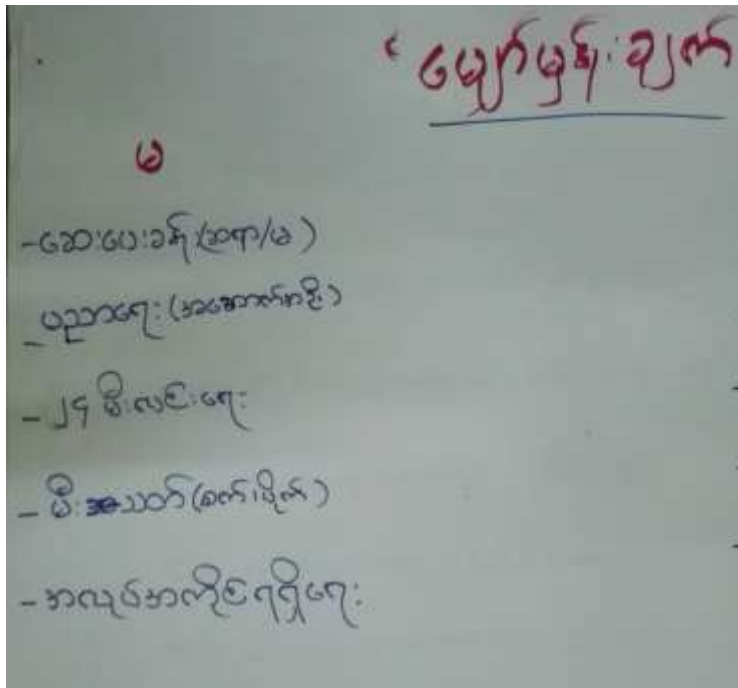 ' မျှော်မှန်းချက်
မ
- ဆေးပေးခန်း (ဆရာ/မ)
- ပညာရေး (အဆောက်အဦး)
- ၂၄ မီးလင်းရေး
- မီးသတ် (စက်၊ပိုက်)
- အလုပ်အကိုင်ရရှိရေး